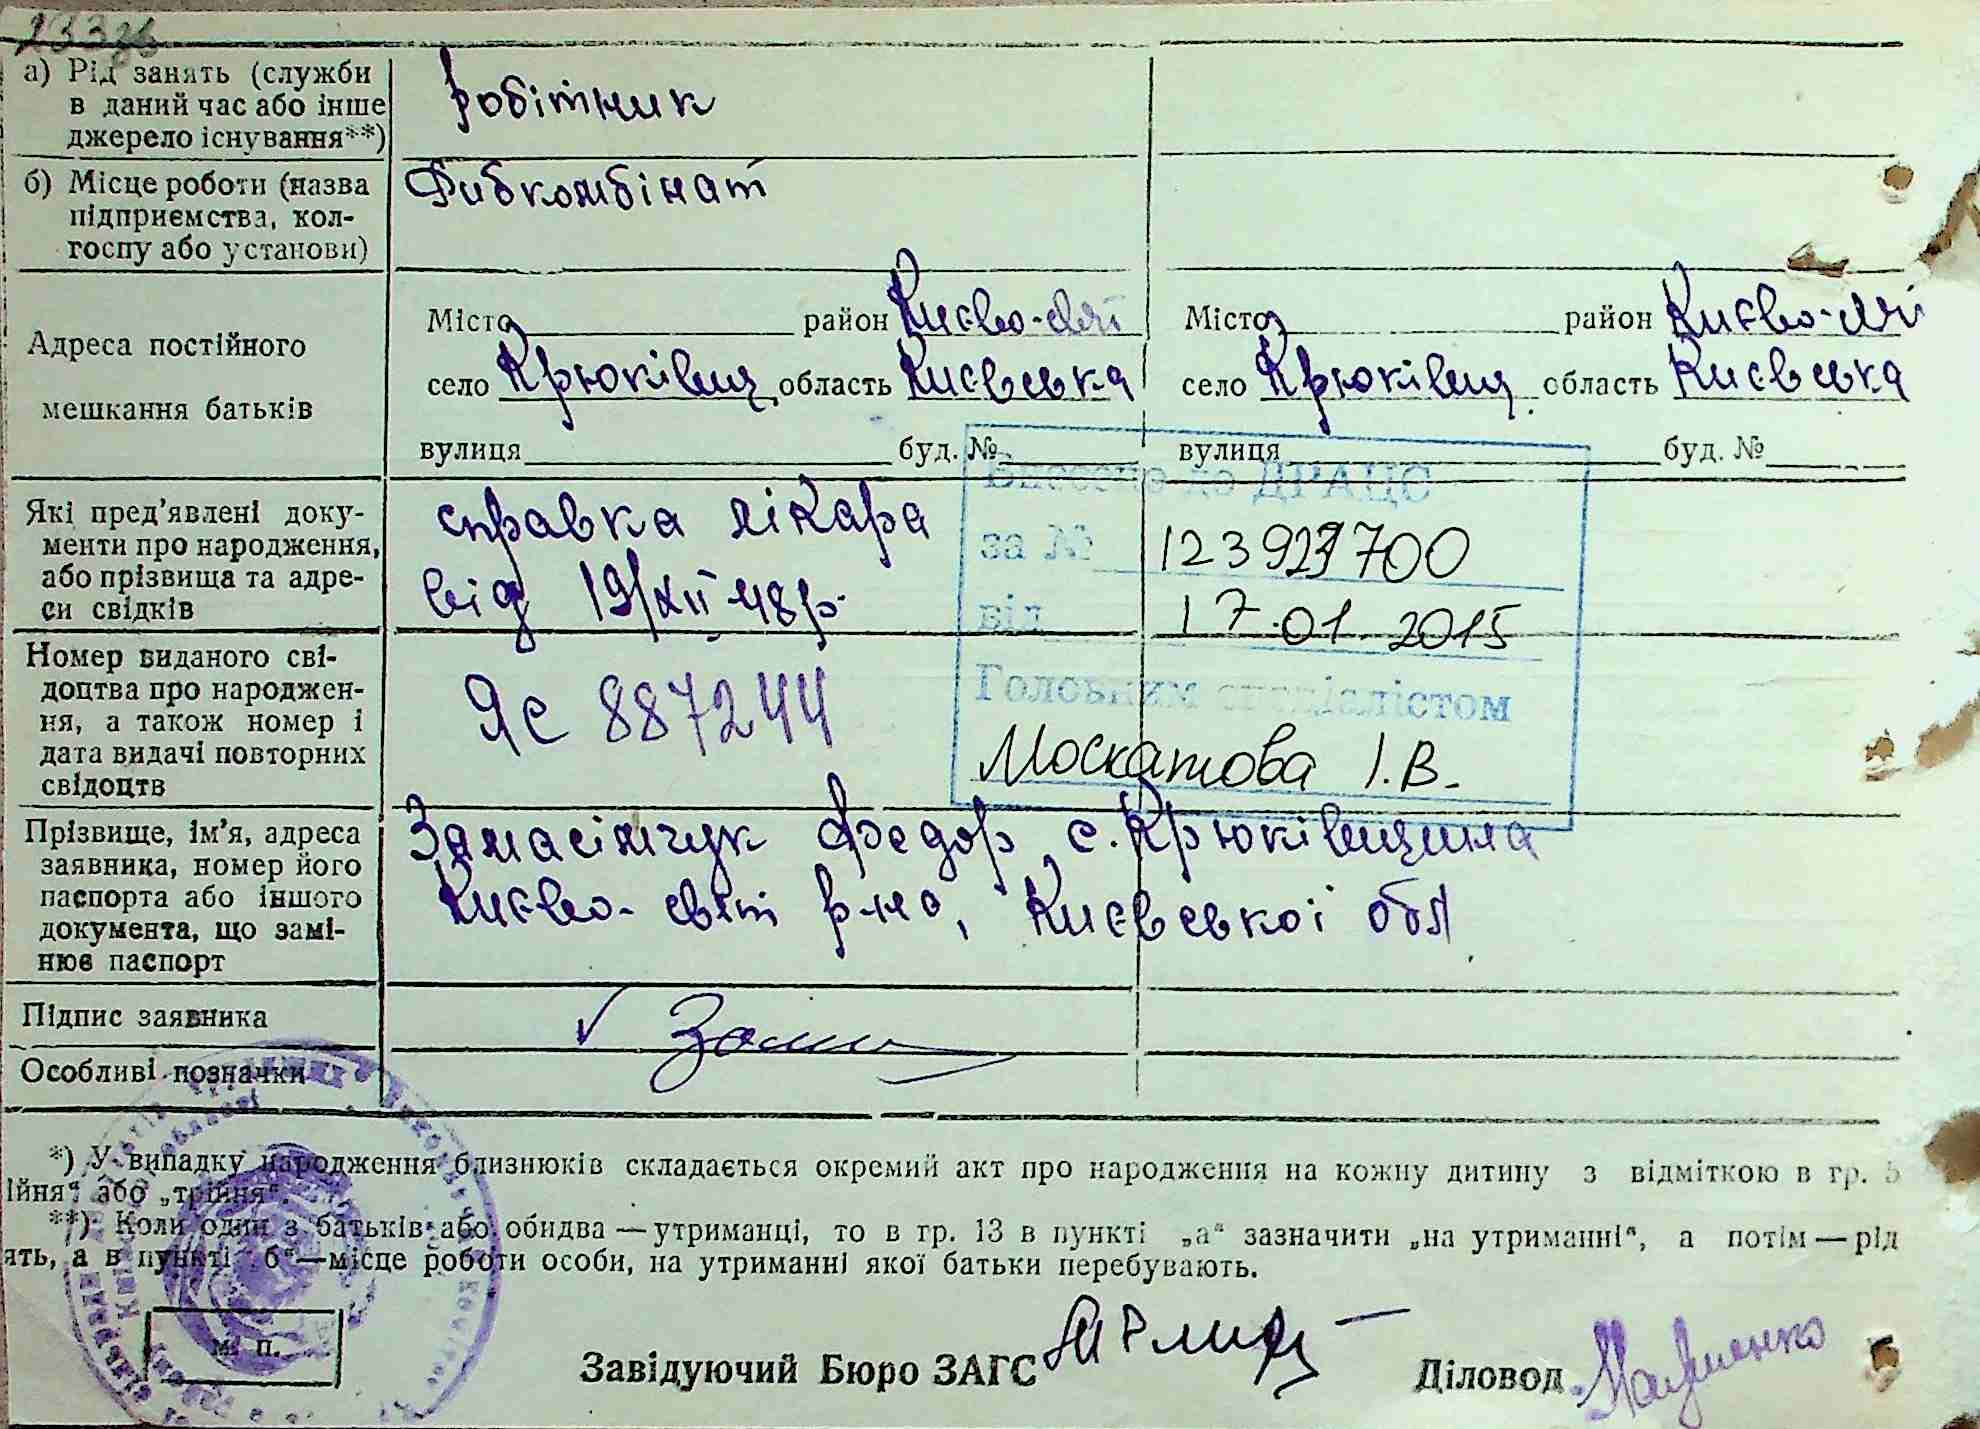 а) Рід занять (служби
в даний час або інше
джерело існування**)
робітник
б) Місце роботи (назва
підприємства, кол-
госпу або установи)
Фибкомбінат
Адреса постійного
мешкання батьків
Місто район Києво-
село Крюківщ область Києвська
вулиця буд. №
Місто район Києво-
село Крюківщ область Києвська
вулиця буд. №
Які пред'явлені доку-
менти про народження,
або прізвища та адре-
си свідків
справка лікара
від 19/XII 48р.
Внесено до ДРАЦС
за №
від 17.01.2015
Головним спеціалістом
Москатова І.В.
Номер виданого сві-
доцтва про народжен-
ня, а також номер і
дата видачі повторних
свідоцтв
ЯС 887244
Прізвище, ім'я, адреса
заявника, номер його
паспорта або іншого
документа, що замі-
нює паспорт
Федор с. Крюківщина
Києво-свят р-но, Києвської обл
Підпис заявника
Особливі позначки
*) У випадку народження близнюків складається окремий акт про народження на кожну дитину з відміткою в гр. 5
ійня" або „трійня".
**) Коли один з батьків або обидва — утриманці, то в гр. 13 в пункті „а" зазначити „на утриманні", а потім — рід
ять, а в пункті „б" — місце роботи особи, на утриманні якої батьки перебувають.
М. П.
Завідуючий Бюро ЗАГС
Діловод